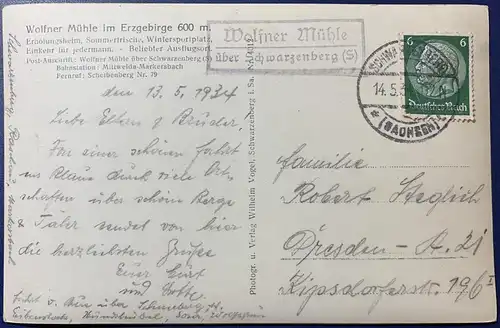 Wolfner Mühle im Erzgebirge 600 m.
Erholungsheim, Sommerfrische, Wintersportplatz,
Einkehr für jedermann. - Beliebter Ausflugsort.
Post-Anschrift: Wolfner Mühle über Schwarzenberg (S)
Bahnstation: Mittweida-Markersbach
Fernruf: Scheibenberg Nr. 79
Wolfner Mühle
über Schwarzenberg (S)
14.5.
(SACHSEN)
6
6
Deutsches Reich
den 13.5.1934
Liebe Eltern & Brüder.
Von einer schönen Fahrt
durch viele Ort-
schaften über schöne Berge
& Täler sendet von hier
die herzlichsten Grüße
Euer
und Lotte
Fahrt v. Aue über Schneeberg,
Eibenstock,
Photogr. u. Verlag Wilhelm Vogel, Schwarzenberg i. Sa.
Familie
Robert Steglich
Dresden - A. 21
Kipsdorferstr. 196 I